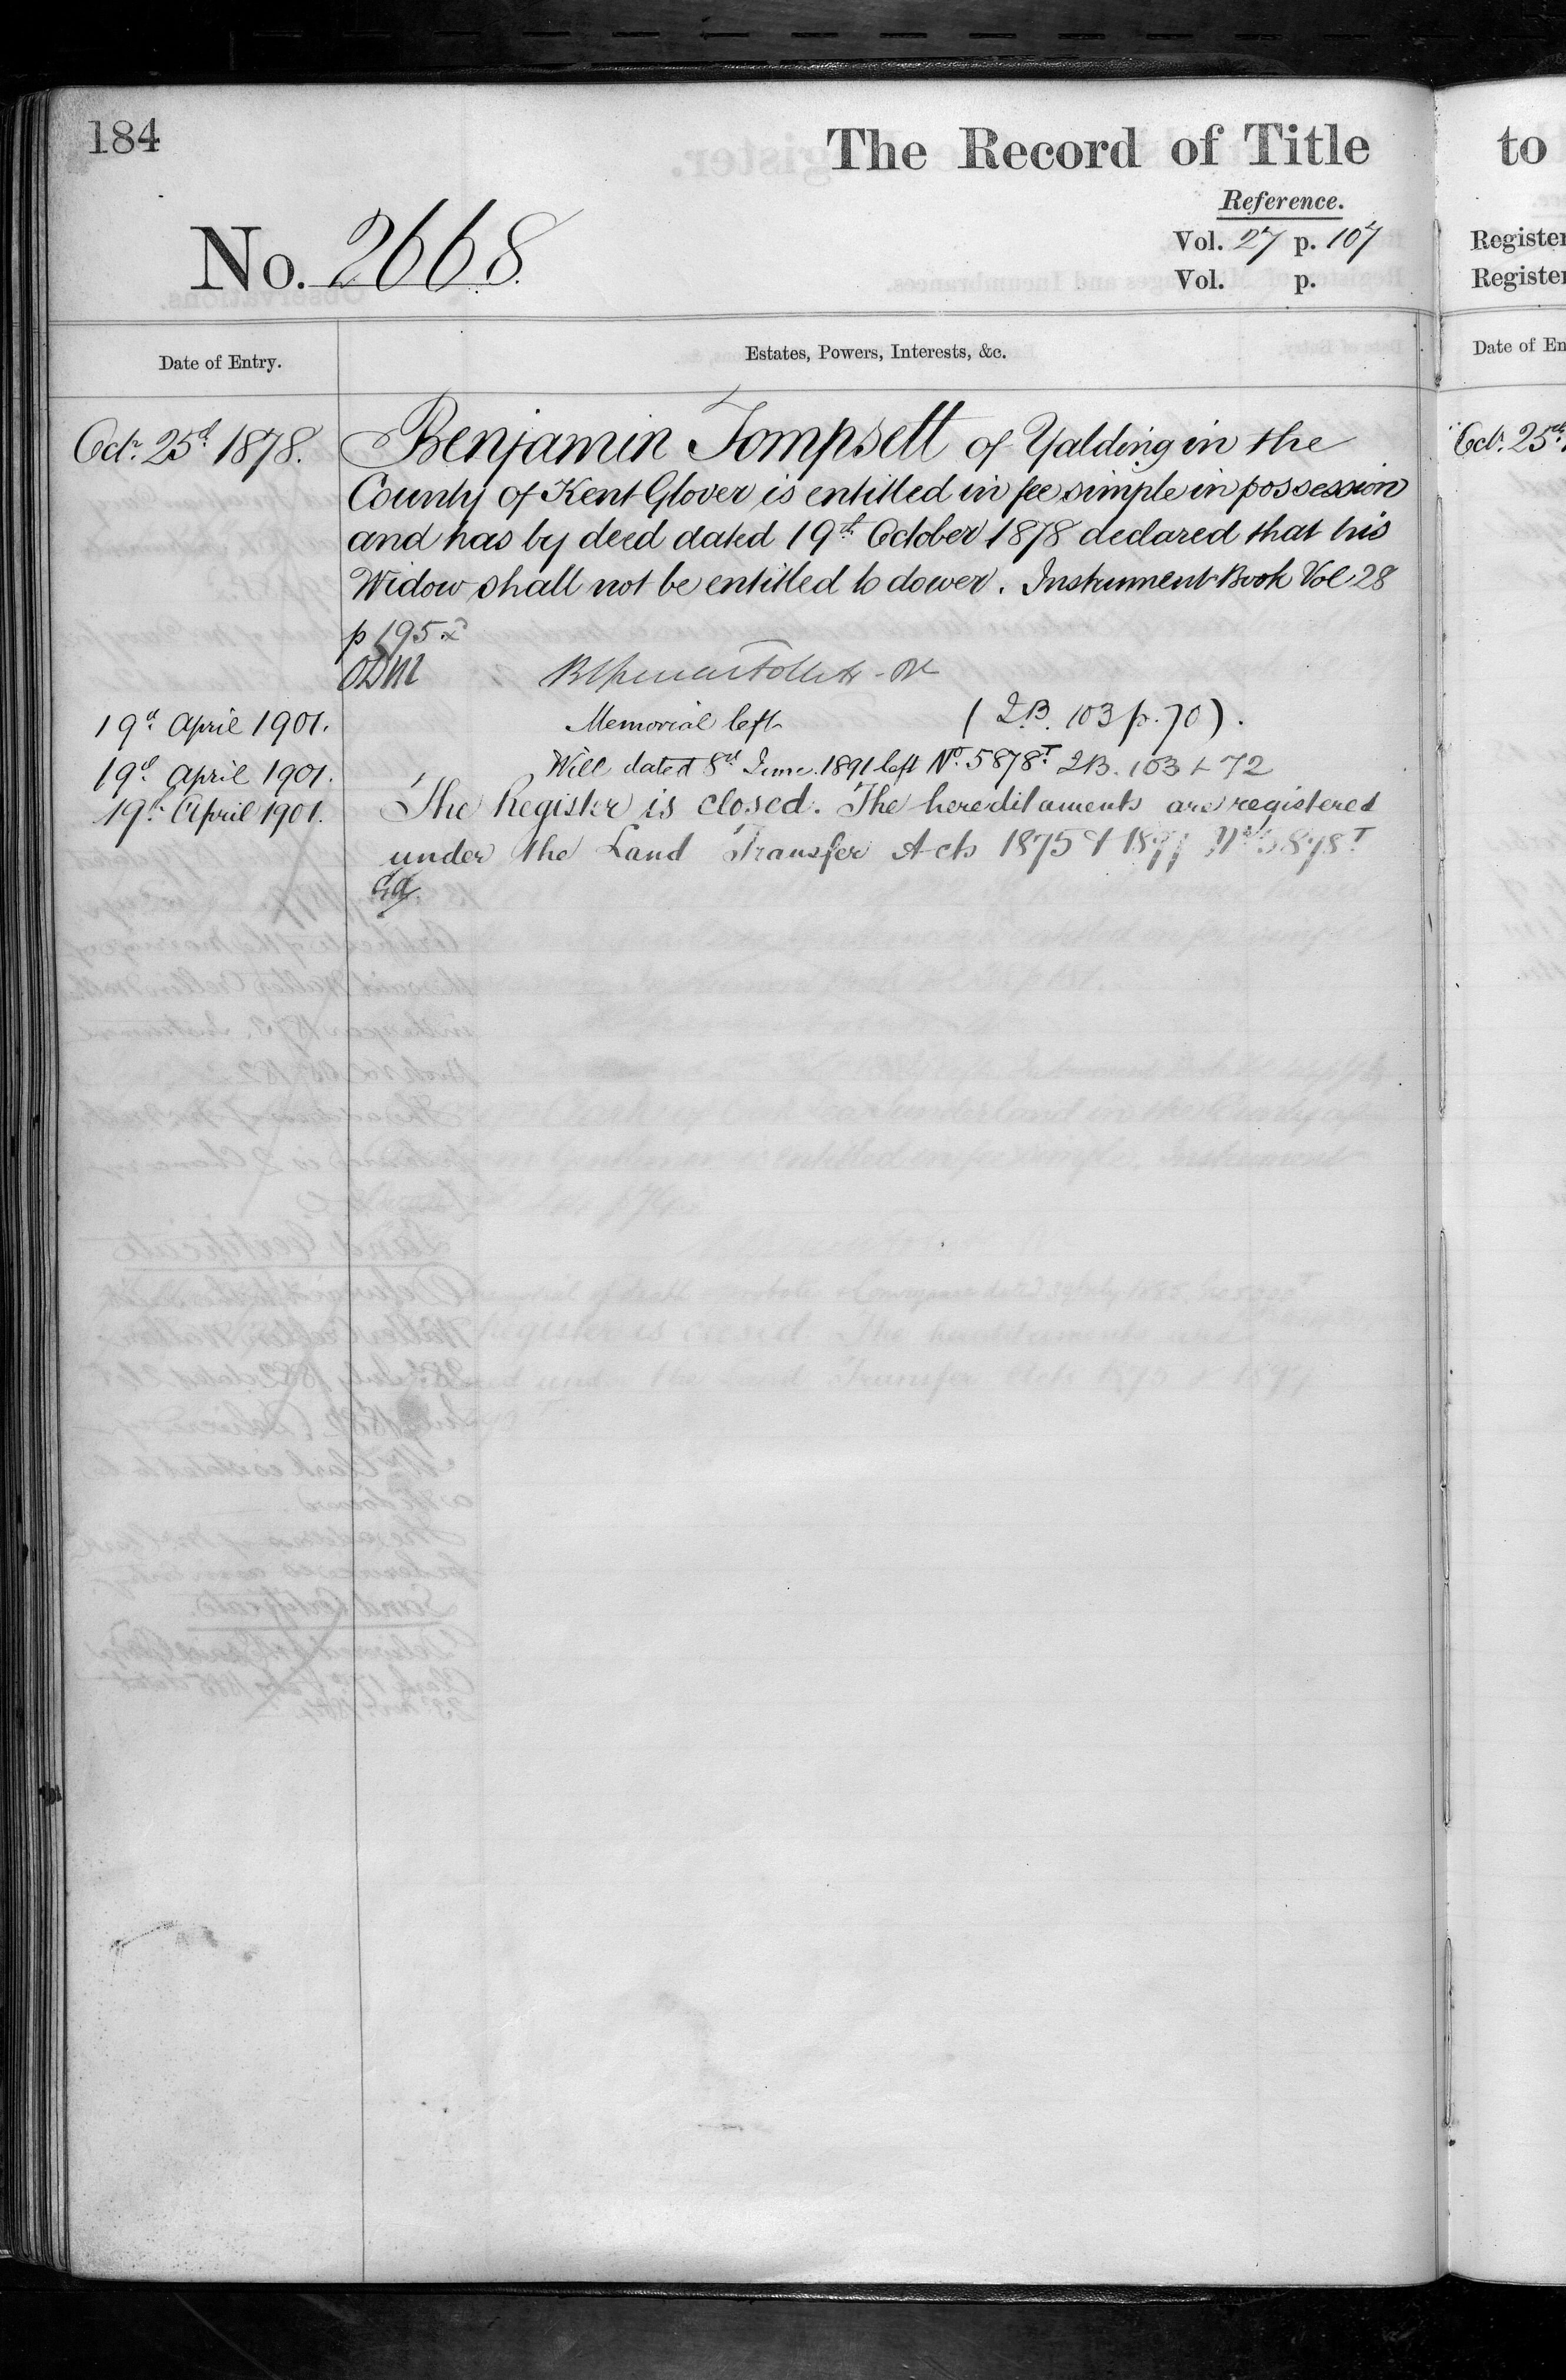 184
The Record of Title
Reference.
No. 2668.
Vol. 27 p. 107
Vol. p.
Date of Entry.
Estates, Powers, Interests, &c.
Octr. 25th 1878.
Benjamin Tompsett of Yalding in the
County of Kent Glover is entitled in fee simple in possession
and has by deed dated 19th October 1878 declared that his
Widow shall not be entitled to dower. Instrument Book Vol 28
p 195.
19th April 1901.
Memorial left (I.B. 103 p. 70).
19th April 1901.
Will dated 8th June 1891 left No. 5878T I.B. 103 72
19th April 1901.
The Register is closed. The hereditaments are registered
under the Land Transfer Acts 1875 & 1897 No 5878T
to
Register
Register
Date of En
Oct. 25th